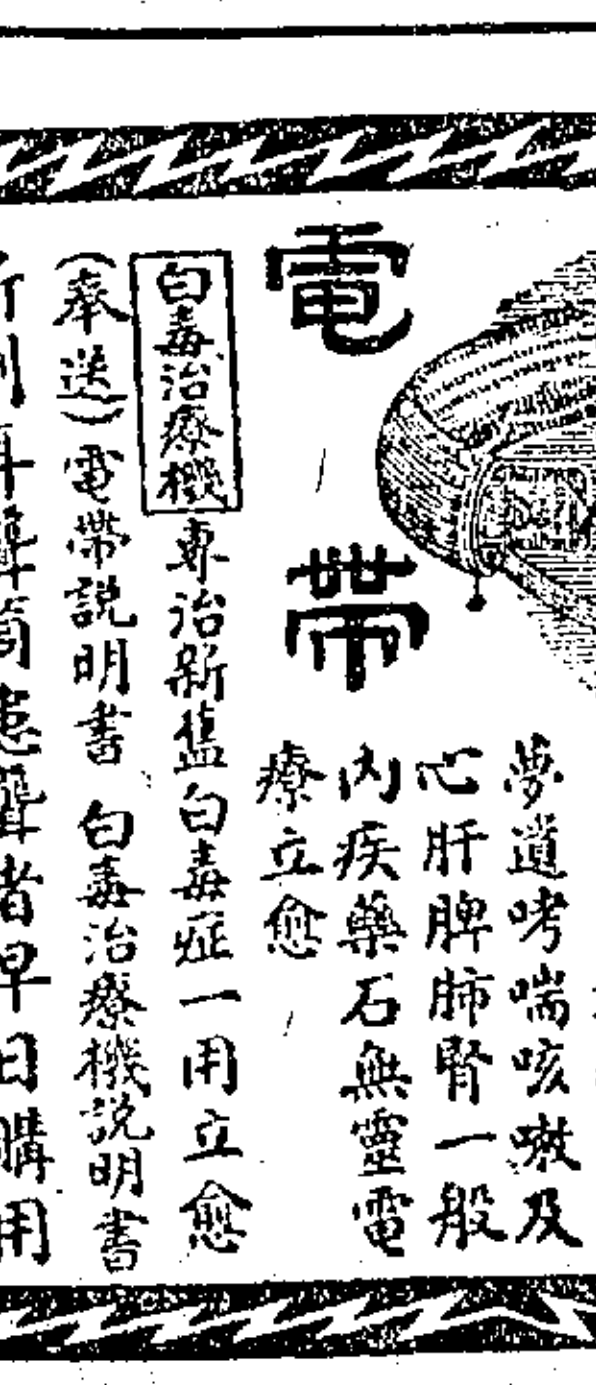 電帶
夢遺哮喘咳嗽及
心肝脾肺腎一般
內疾藥石無靈電
療立愈
白毒治療機 專治新舊白毒症一用立愈
(奉送)電帶説明書 白毒治療機説明書
耳聾筒患聾者早日購用